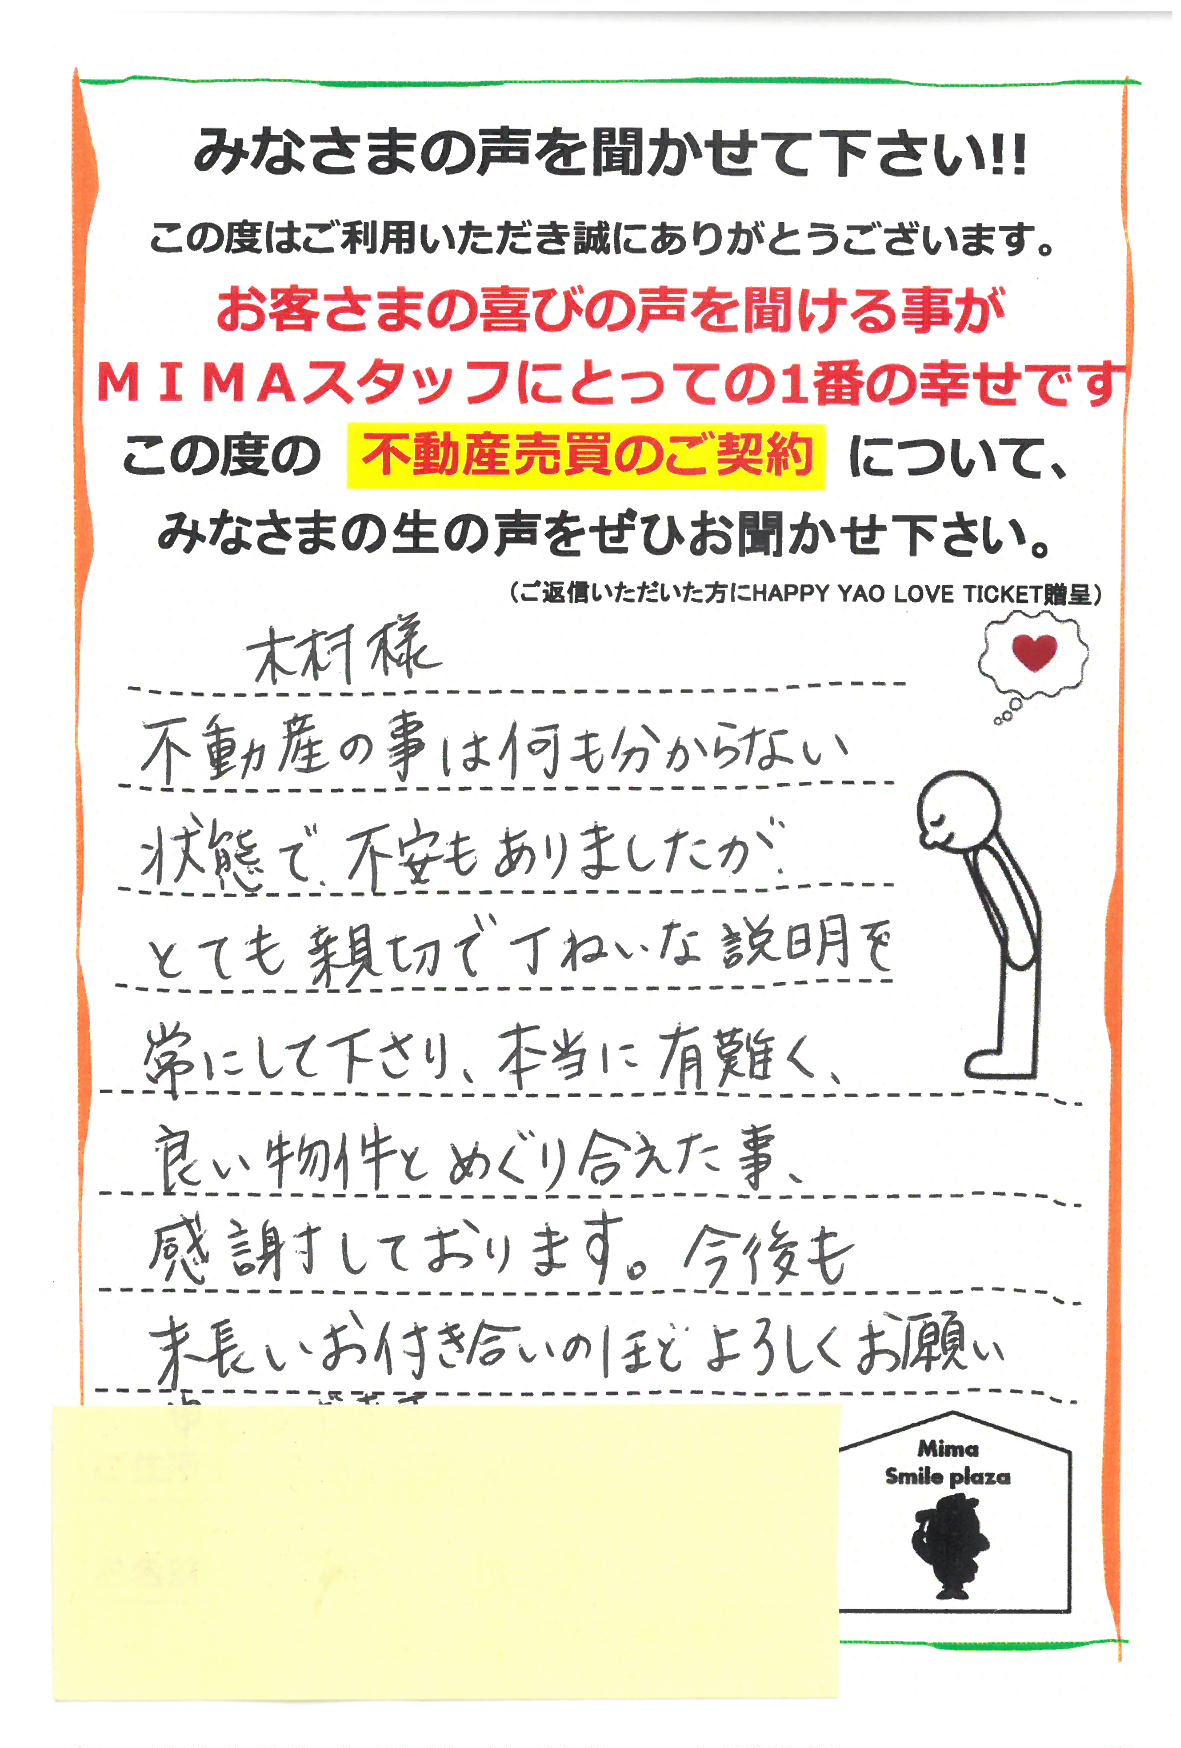 みなさまの声を聞かせて下さい!!
この度はご利用いただき誠にありがとうございます。
お客さまの喜びの声を聞ける事が
ＭＩＭＡスタッフにとっての1番の幸せです
この度の 不動産売買のご契約 について、
みなさまの生の声をぜひお聞かせ下さい。
（ご返信いただいた方にHAPPY YAO LOVE TICKET贈呈）
木村様
不動産の事は何も分からない
状態で、不安もありましたが、
とても親切で丁ねいな説明を
常にして下さり、本当に有難く、
良い物件とめぐり合えた事、
感謝しております。今後も
末長いお付き合いのほどよろしくお願い
Mima
Smile plaza